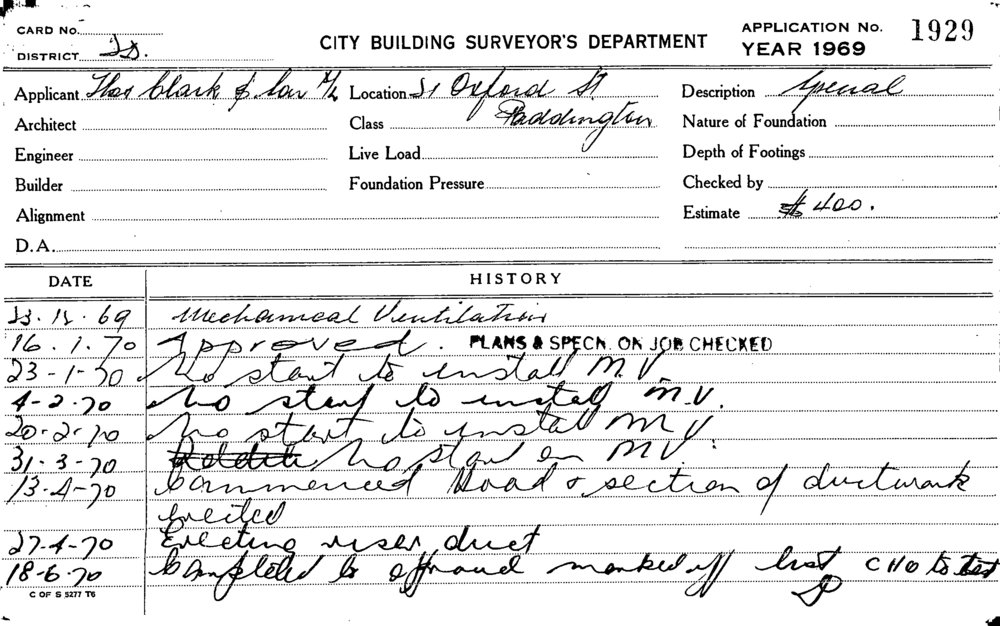 CARD No.
DISTRICT
CITY BUILDING SURVEYOR'S DEPARTMENT
APPLICATION No. 1929
YEAR 1969
Applicant Thos Clark & Son
Location Oxford St. Paddington
Description Special
Architect
Class
Nature of Foundation
Engineer
Live Load
Depth of Footings
Builder
Foundation Pressure
Checked by
Alignment
Estimate $400.
D.A.
DATE HISTORY
23.12.69 Mechanical Ventilation
16.1.70 Approved. PLANS & SPECN. ON JOB CHECKED
23-1-70 No start to install M.V.
4-2-70 No start to install M.V.
20-2-70 No start to install M.V.
31-3-70 No start on M.V.
13-4-70 Commenced Hood & section of ductwork
erected
27-4-70 Erecting riser duct
18-6-70 Completed to approval marked off list CHO to test
C OF S 5277 T6